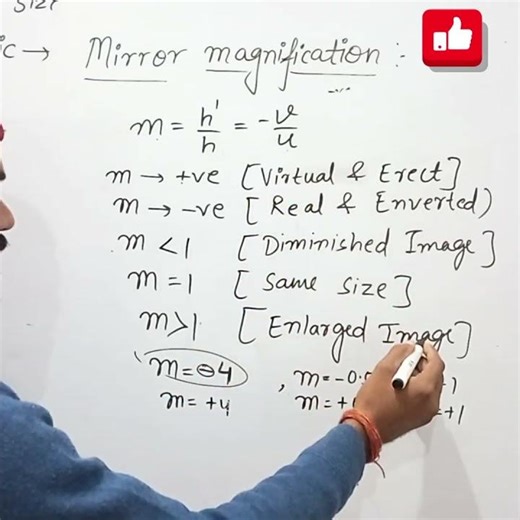 size
ic → Mirror magnification :-
m = h'/h = -v/u
m → +ve [Virtual & Erect]
m → -ve [Real & Enverted)
m < 1 [Diminished Image]
m = 1 [Same Size]
m > 1 [Enlarged Image]
m = -4 , m = -0. 1
m = +4 m = + +1